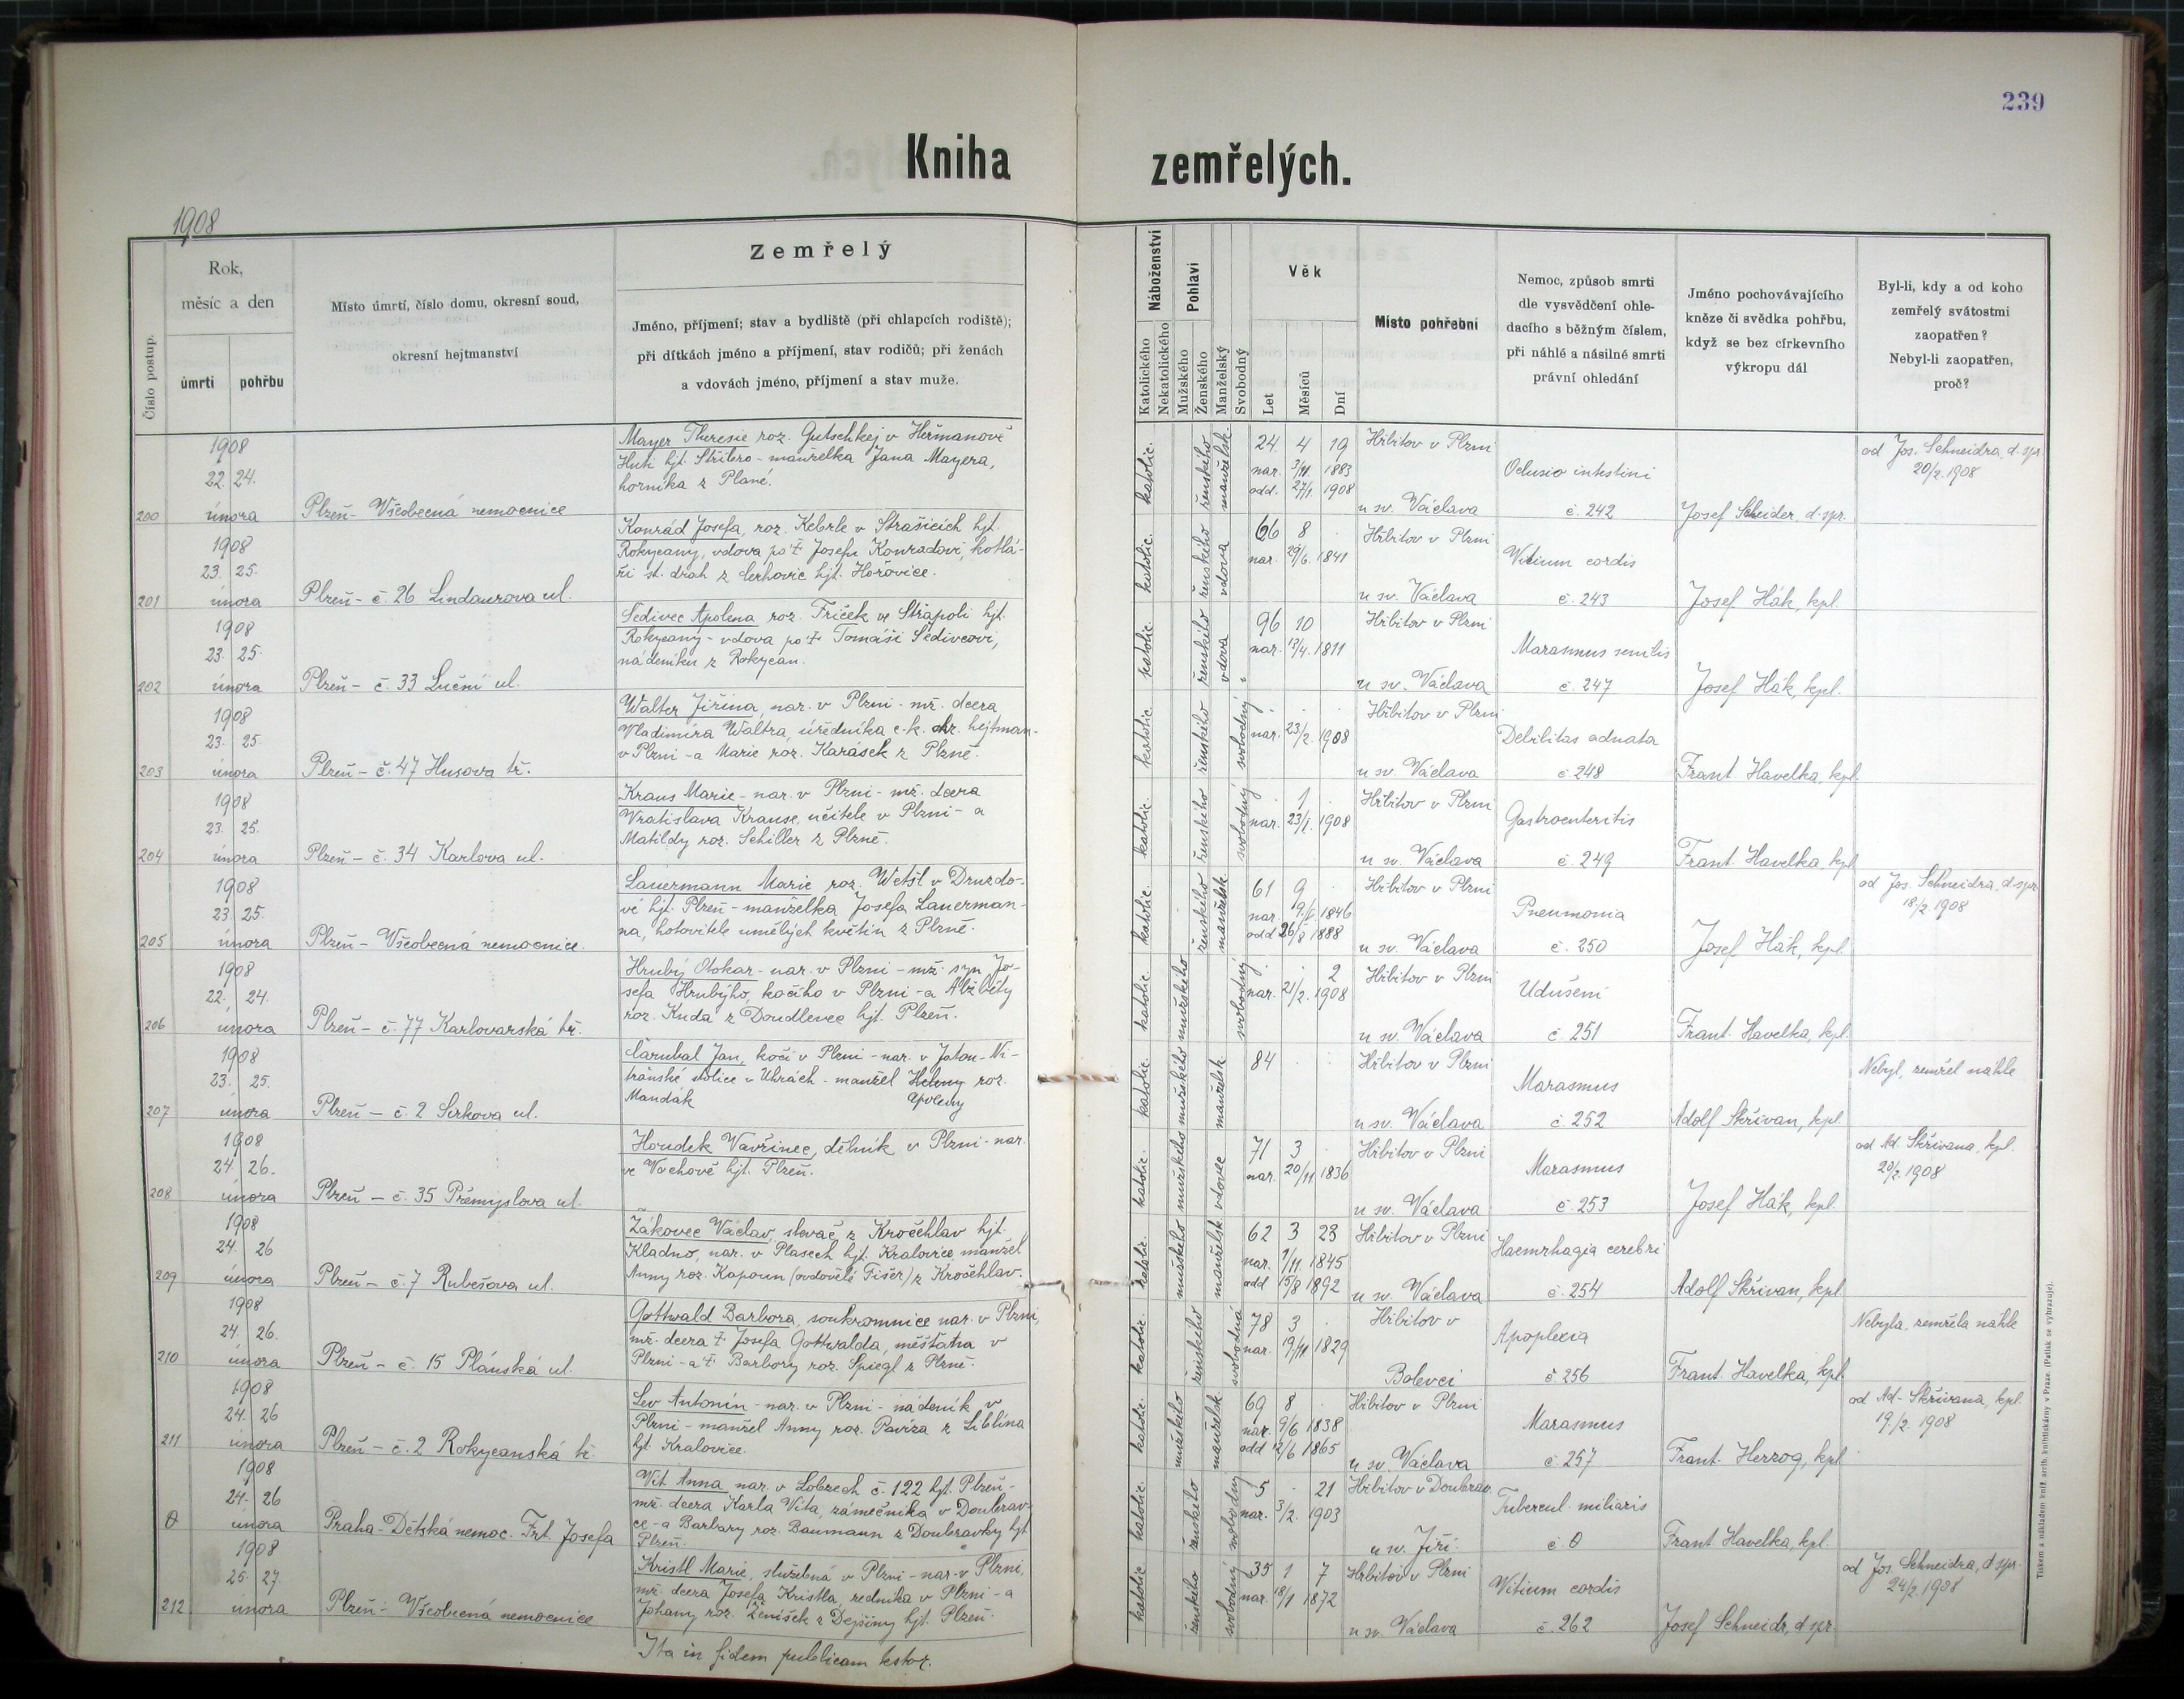 239
Kniha zemřelých.
1908
Číslo postup.
Rok,
měsíc a den
úmrtí
pohřbu
Místo úmrtí, číslo domu, okresní soud,
okresní hejtmanství
Zemřelý
Jméno, příjmení; stav a bydliště (při chlapcích rodiště);
při dítkách jméno a příjmení, stav rodičů; při ženách
a vdovách jméno, příjmení a stav muže.
Náboženství
Katolického
Nekatolického
Pohlaví
Mužského
Ženského
Manželský
Svobodný
Věk
Let
Měsíců
Dní
Místo pohřební
Nemoc, způsob smrti
dle vysvědčení ohle-
dacího s běžným číslem,
při náhlé a násilné smrti
právní ohledání
Jméno pochovávajícího
kněze či svědka pohřbu,
když se bez církevního
výkropu dál
Byl-li, kdy a od koho
zemřelý svátostmi
zaopatřen?
Nebyl-li zaopatřen,
proč?
200
1908
22. 24.
února
Plzeň - Všeobecná nemocnice
Mayer Theresie roz. Gutschkej v Heřmanově
Huti hjt. Stříbro - manželka Jana Mayera,
horníka z Plané.
katolic. ženského manželsk.
24. 4 19
nar. 3/11. 1883
odd. 27/1 1908
Hřbitov v Plzni
u sv. Václava
Oclusio intestini
č. 242
Josef Scheider, d. spr.
od Jos. Schneidra, d. spr.
20/2. 1908
201
1908
23. 25.
února
Plzeň - č. 26 Lindaurova ul.
Konrád Josefa, roz. Keberle v Strašicích hjt.
Rokycany, vdova po † Josefu Konradovi, kotlá-
ři st. drah z Cerhovic hjt. Hořovice.
katolic. ženského vdova
66 8
nar. 29/6. 1841
Hřbitov v Plzni
u sv. Václava
Vitium cordis
č. 243
Josef Hák, kpl.
202
1908
23. 25.
února
Plzeň - č. 33 Luční ul.
Šedivec Apolena roz. Tříček ve Střapoli hjt.
Rokycany - vdova po † Tomáši Šedivcovi,
nádeníku z Rokycan.
katolic. ženského vdova
96 10
nar. 1811
Hřbitov v Plzni
u sv. Václava
Marasmus senilis
č. 247
Josef Hák, kpl.
203
1908
23. 25.
února
Plzeň - č. 47 Husova tř.
Walter Jiřina, nar. v Plzni - mž. dcera
Vladimíra Waltra, úředníka c.k. okr. hejtman.
v Plzni - a Marie roz. Karásek z Plzně.
katolic. ženského svobodný
nar. 23/2. 1908
Hřbitov v Plzni
u sv. Václava
Debilitas adnata
č. 248
Frant. Havelka, kpl.
204
1908
23. 25.
února
Plzeň - č. 34 Karlova ul.
Kraus Marie - nar. v Plzni - mž. dcera
Vratislava Krause, učitele v Plzni - a
Matildy roz. Schiller z Plzně.
katolic. ženského svobodný
1
nar. 23/1. 1908
Hřbitov v Plzni
u sv. Václava
Gastroenteritis
č. 249
Frant. Havelka, kpl.
205
1908
23. 25.
února
Plzeň - Všeobecná nemocnice.
Lauermann Marie roz. Wetšl v Druzdo-
vé hjt. Plzeň - manželka Josefa Lauerman-
na, hotovitele umělých květin z Plzně.
katolic. ženského manželsk.
61 9
nar. 1846
odd 26/8 1888
Hřbitov v Plzni
u sv. Václava
Pneumonia
č. 250
Josef Hák, kpl.
od Jos. Schneidra, d. spr.
18/2. 1908
206
1908
22. 24.
února
Plzeň - č. 77 Karlovarská tř.
Hrubý Otokar - nar. v Plzni - mž. syn Jo-
sefa Hrubýho, kočího v Plzni - a Alžběty
roz. Kuda z Doudlevec hjt. Plzeň.
katolic. mužského svobodný
2
nar. 21/2. 1908
Hřbitov v Plzni
u sv. Václava
Udušení
č 251
Frant. Havelka, kpl.
207
1908
23. 25.
února
Plzeň - č. 2 Sirkova ul.
Čarnbal Jan, kočí v Plzni - nar. v Jaton - Ni-
tránské stolice v Uhrách - manžel Heleny roz.
Mandák Apoleny
katolic. mužského manželsk.
84
Hřbitov v Plzni
u sv. Václava
Marasmus
č. 252
Adolf Skřivan, kpl.
Nebyl, zemřel náhle
208
1908
24. 26.
února
Plzeň - č. 35 Přemyslova ul.
Houdek Vavřinec, dělník v Plzni - nar.
ve Vochově hjt. Plzeň.
katolic. mužského vdovec
71 3
nar. 20/11. 1836
Hřbitov v Plzni
u sv. Václava
Marasmus
č. 253
Josef Hák, kpl.
od Ad. Skřivana, kpl.
20/2. 1908
209
1908
24. 26
února
Plzeň - č. 7 Rubešova ul.
Žákovec Václav, slevač z Kročehlav hjt.
Kladno, nar. v Plasech hjt. Kralovice manžel
Anny roz. Kapoun (ovdovělé Fišer) z Kročehlav.
katolic. mužského manželsk.
62 3 23
nar. 1/11. 1845
odd 15/8 1892
Hřbitov v Plzni
u sv. Václava
Haemrhagia cerebri
č. 254
Adolf Skřivan, kpl
210
1908
24. 26.
února
Plzeň - č. 15 Plánská ul.
Gottwald Barbora, soukromnice nar. v Plzni,
mž. dcera † Josefa Gottwalda, měšťana v
Plzni - a † Barbory roz. Spiegl z Plzně.
katolic. ženského svobodná
78 3
nar. 19/11 1829
Hřbitov v
Bolevci
Apoplexia
č. 256
Frant. Havelka, kpl.
Nebyla, zemřela náhle
211
1908
24. 26
února
Plzeň - č. 2 Rokycanská tř.
Lev Antonín - nar. v Plzni - nádeník v
Plzni - manžel Anny roz. Paviza z Liblína
hjt. Kralovice.
katolic. mužského manželsk.
69 8
nar. 9/6 1838
odd 12/6 1865
Hřbitov v Plzni
u sv. Václava
Marasmus
č. 257
Frant. Herzog, kpl
od Ad. Skřivana, kpl.
19./2. 1908
0
1908
24. 26
února
Praha - Dětská nemoc. Frt. Josefa
Vít Anna, nar. v Lobzech č. 122 hjt. Plzeň -
mž. dcera Karla Víta, zámečníka v Doubrav-
ce - a Barbary roz. Baumann z Doubravky hjt
Plzeň.
katolic. ženského svobodný
5 21
nar. 3/2. 1903
Hřbitov v Doubrav.
u sv. Jiří.
Tubercul. miliaris
č 0
Frant. Havelka, kpl.
212
1908
25. 27.
února
Plzeň - Všeobecná nemocnice
Kristl Marie, služebná v Plzni - nar. v Plzni,
mž. dcera Josefa Kristla, zedníka v Plzni - a
Johany roz. Ženíšek z Dejšiny hjt. Plzeň.
katolic ženského svobodný
35 1 7
nar. 18/1 1872
Hřbitov v Plzni
u sv. Václava
Vitium cordis
č. 262
Josef Schneidr, d spr.
od Jos. Schneidra, d spr.
24/2. 1908
Ita in fidem publicam testor.
Tiskem a nákladem kníž. arcib. knihtiskárny v Praze. (Patisk se vyhrazuje).